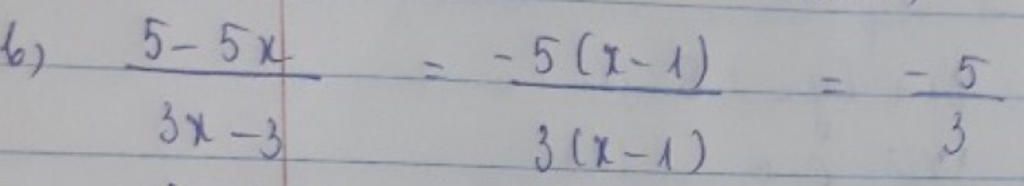 b) \frac{5-5x}{3x-3} = \frac{-5(x-1)}{3(x-1)} = \frac{-5}{3}